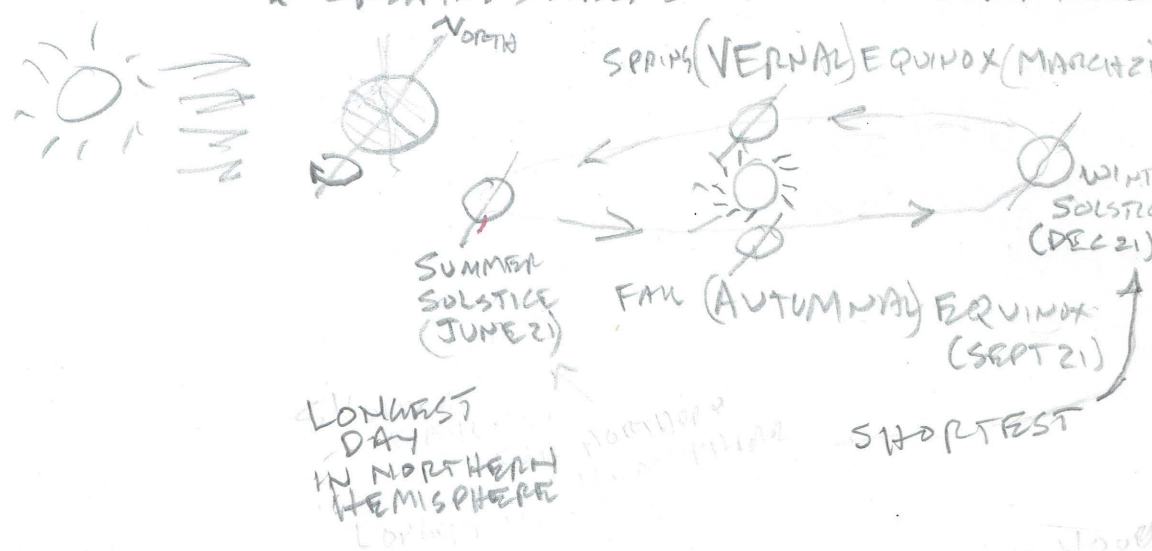 NORTH
SPRING (VERNAL) EQUINOX (MARCH 21
WINT
SOLSTIC
(DEC 21)
SUMMER
SOLSTICE
(JUNE 21)
FALL (AUTUMNAL) EQUINOX
(SEPT 21)
LONGEST
DAY
IN NORTHERN
HEMISPHERE
SHORTEST